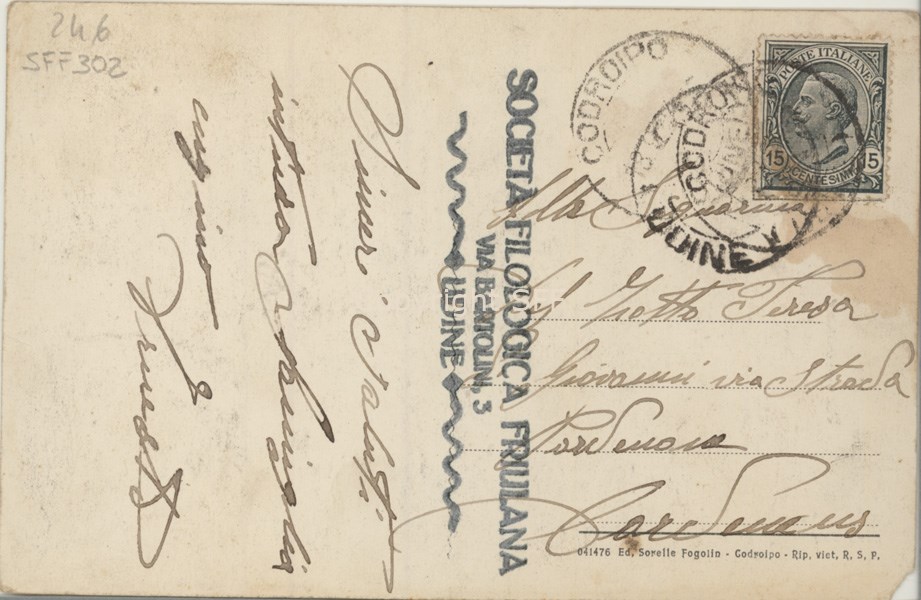 246
SFF302
Sinceri Saluti
intera famiglia
cugino
CODROIPO
CODROIPO
UDINE
POSTE ITALIANE
15 15
CENTESIMI
SOCIETÀ FILOLOGICA FRIULANA
VIA BARTOLINI, 3
UDINE
Alla Signorina
Zietto Teresa
Giovanni via Strada
Pordenone
041476 Ed. Sorelle Fogolin - Codroipo - Rip. viet. R. S. P.